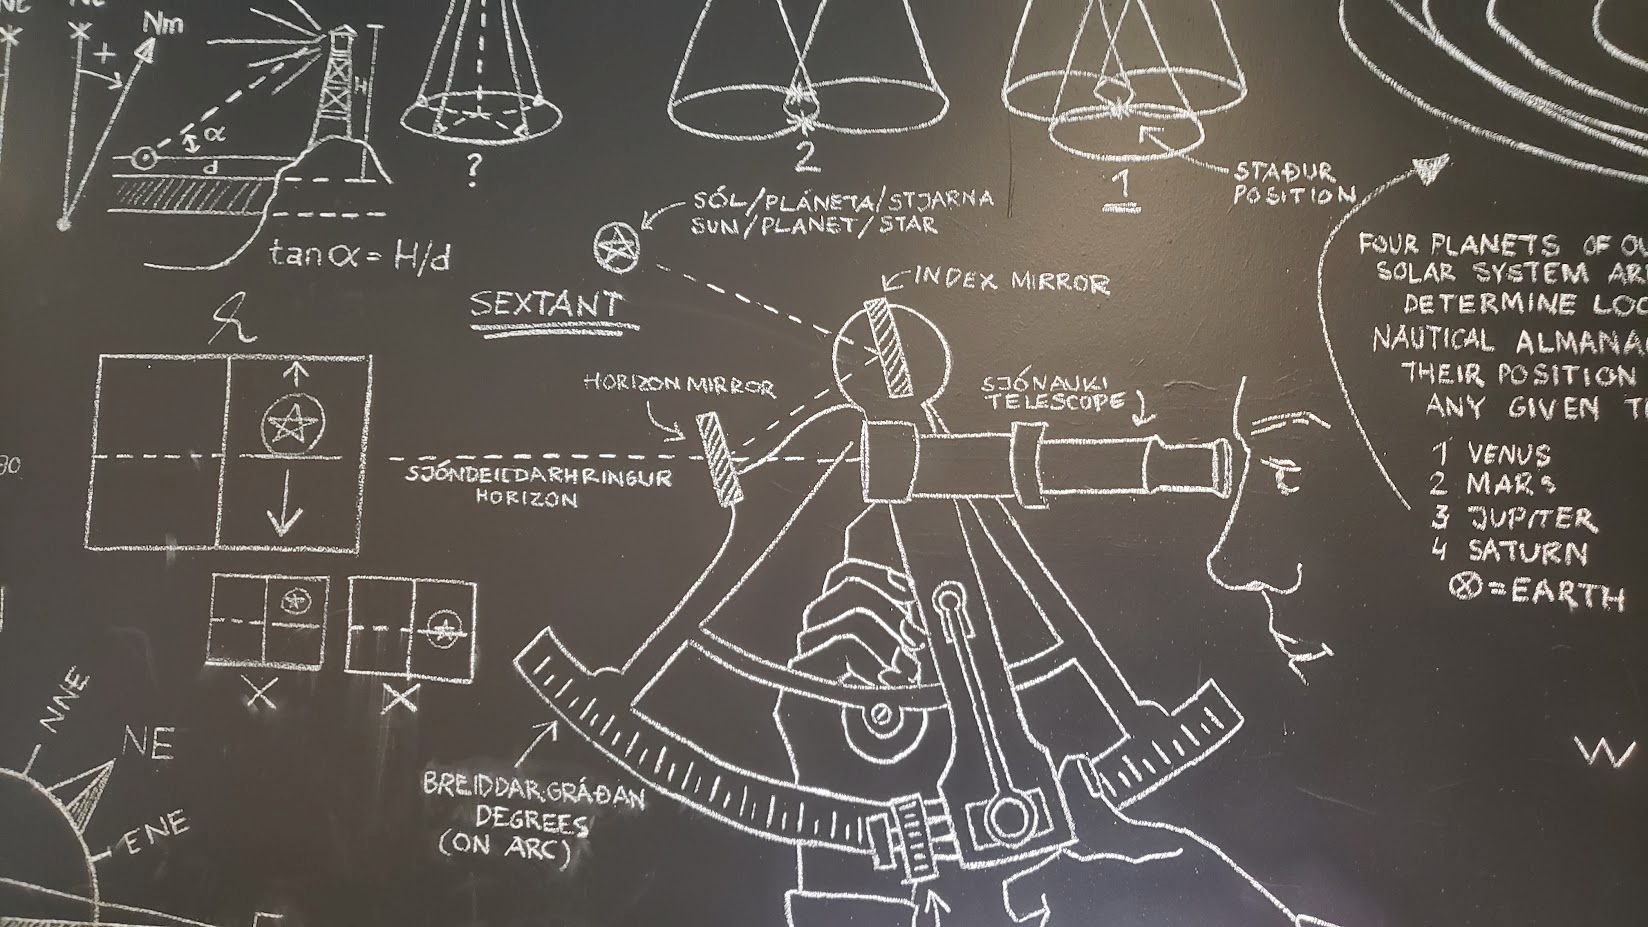 Nm
+
H
α
d
tan α = H/d
?
2
1
STAÐUR
POSITION
SÓL/PLÁNETA/STJARNA
SUN/PLANET/STAR
SEXTANT
INDEX MIRROR
HORIZON MIRROR
SJÓNAUKI
TELESCOPE
SJÓNDEILDARHRINGUR
HORIZON
FOUR PLANETS OF
SOLAR SYSTEM
DETERMINE
NAUTICAL
THEIR POSITION
ANY GIVEN
1 VENUS
2 MARS
3 JUPITER
4 SATURN
⊗ = EARTH
X
X
NNE
NE
ENE
BREIDDARGRÁÐAN
DEGREES
(ON ARC)
W